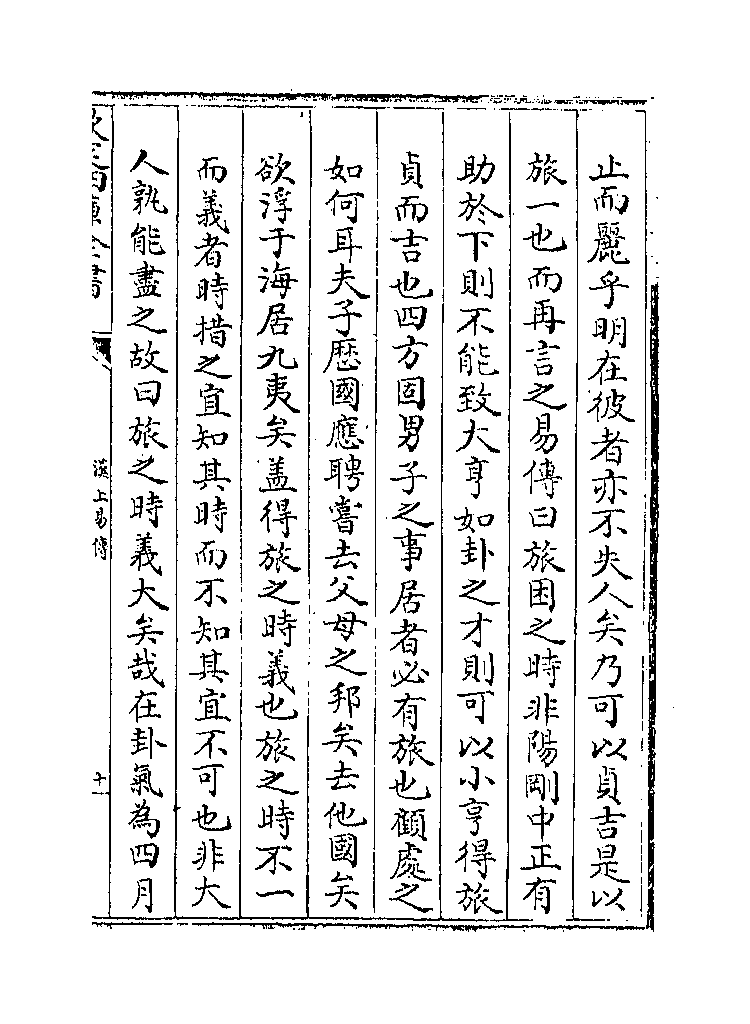 止而麗乎明在彼者亦不失人矣乃可以貞吉是以
旅一也而再言之易傳曰旅困之時非陽剛中正有
助於下則不能致大亨如卦之才則可以小亨得旅
貞而吉也四方固男子之事居者必有旅也顧處之
如何耳夫子歴國應聘嘗去父母之邦矣去他國矣
欲浮于海居九夷矣盖得旅之時義也旅之時不一
而義者時措之宜知其時而不知其宜不可也非大
人孰能盡之故曰旅之時義大矣哉在卦氣為四月
欽定四庫全書
漢上易傳
十